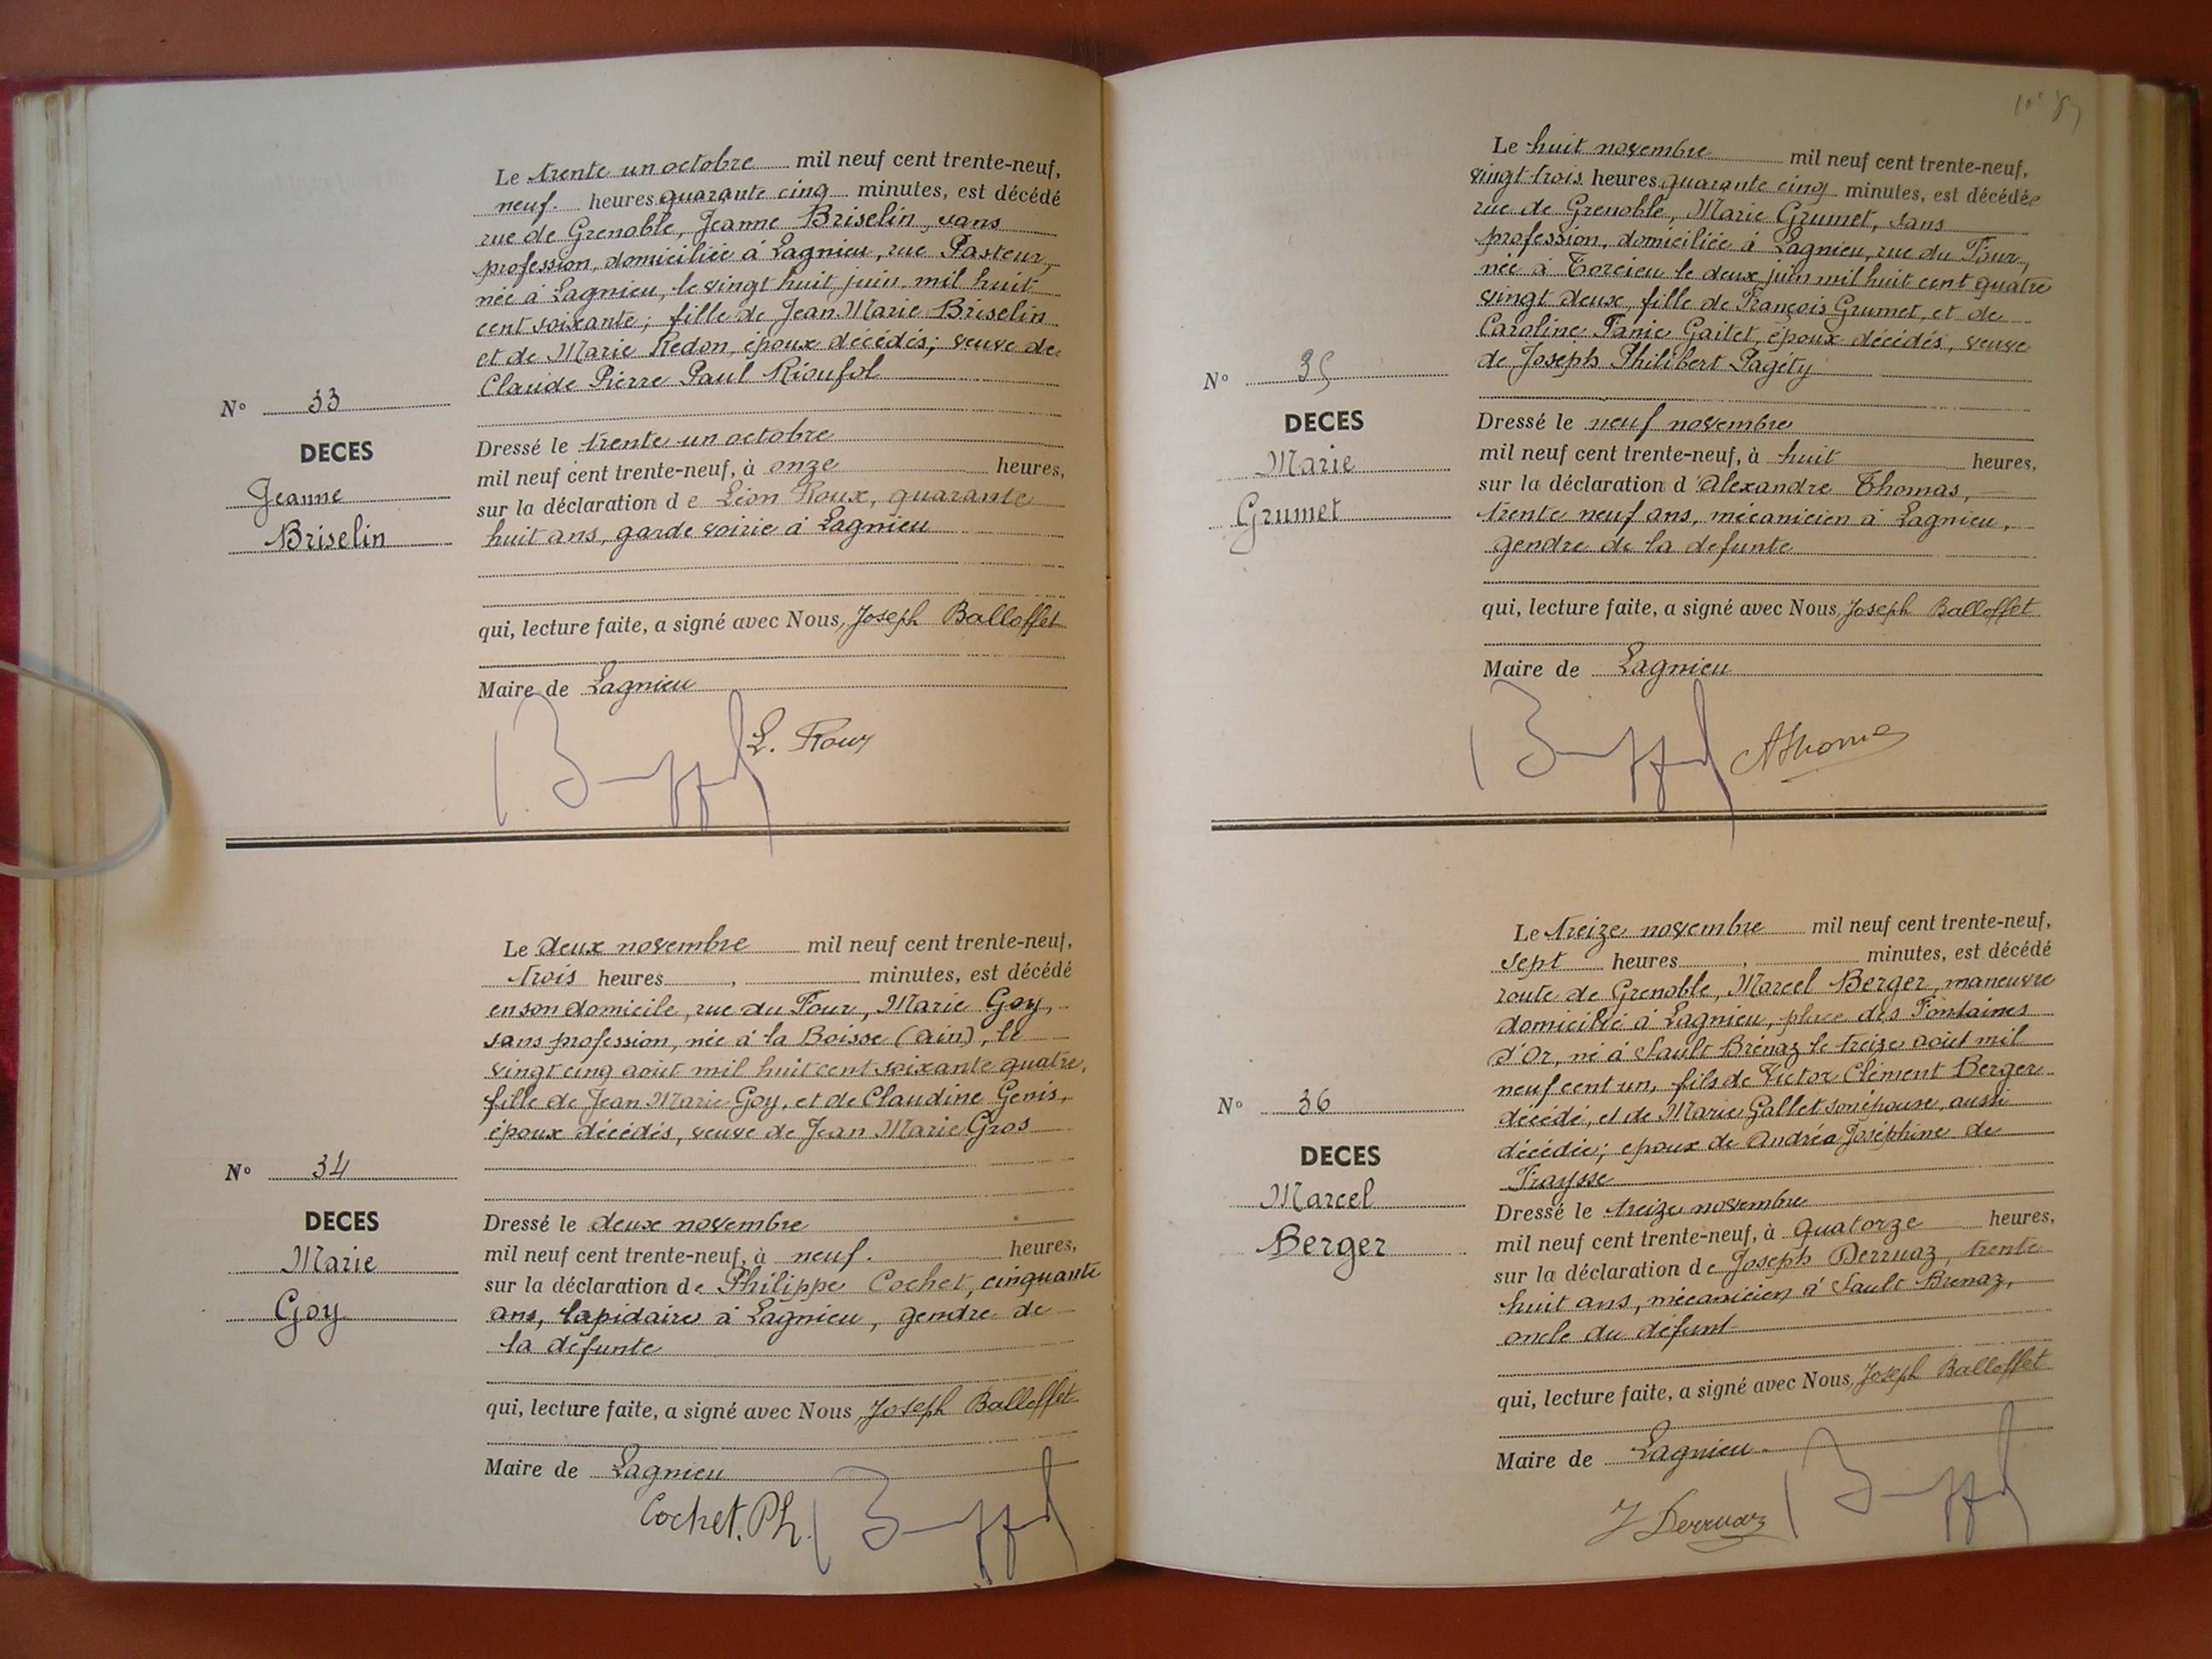 Le trente un octobre mil neuf cent trente-neuf,
neuf. heures quarante cinq minutes, est décédé
rue de Grenoble, Jeanne Briselin, sans
profession, domiciliée à Lagnieu, rue Pasteur,
née à Lagnieu, le vingt huit juin mil huit
cent soixante; fille de Jean Marie Briselin
et de Marie Redon, époux décédés; veuve de
Claude Pierre Paul Rioufol
N° 33
DECES
Jeanne
Briselin
Dressé le trente un octobre
mil neuf cent trente-neuf, à onze heures,
sur la déclaration de Léon Roux, quarante
huit ans, garde voirie à Lagnieu
qui, lecture faite, a signé avec Nous, Joseph Balloffet
Maire de Lagnieu
L. Roux
Le deux novembre mil neuf cent trente-neuf,
trois heures, minutes, est décédé
en son domicile, rue du Four, Marie Goy,
sans profession, née à la Boisse (Ain), le
vingt cinq août mil huit cent soixante quatre,
fille de Jean Marie Goy, et de Claudine Genis,
époux décédés, veuve de Jean Marie Gros
N° 34
DECES
Marie
Goy
Dressé le deux novembre
mil neuf cent trente-neuf, à neuf. heures,
sur la déclaration de Philippe Cochet, cinquante
ans, lapidaire à Lagnieu, gendre de
la défunte
qui, lecture faite, a signé avec Nous, Joseph Balloffet
Maire de Lagnieu
Cochet. Ph.
Le huit novembre mil neuf cent trente-neuf,
vingt trois heures quarante cinq minutes, est décédée
rue de Grenoble, Marie Grumet, sans
profession, domiciliée à Lagnieu, rue du Four,
née à Torcieu le deux juin mil huit cent quatre
vingt deux, fille de François Grumet, et de
Caroline Fanie Gaitet, époux décédés, veuve
de Joseph Philibert Pagéty
N° 35
DECES
Marie
Grumet
Dressé le neuf novembre
mil neuf cent trente-neuf, à huit heures,
sur la déclaration d'Alexandre Thomas,
trente neuf ans, mécanicien à Lagnieu,
gendre de la defunte
qui, lecture faite, a signé avec Nous, Joseph Balloffet
Maire de Lagnieu
AThomas
Le treize novembre mil neuf cent trente-neuf,
sept heures, minutes, est décédé
route de Grenoble, Marcel Berger, maneuvre
domicilié à Lagnieu, place des Fontaines
d'Or, né à Sault Brénaz le treize août mil
neuf cent un, fils de Victor Clément Berger
décédé, et de Marie Gallet son épouse, aussi
décédée; epoux de Andréa Joséphine de
Fraysse
N° 36
DECES
Marcel
Berger
Dressé le treize novembre
mil neuf cent trente-neuf, à quatorze heures,
sur la déclaration de Joseph Derruaz, trente
huit ans, mécanicien à Sault Brenaz,
oncle du défunt
qui, lecture faite, a signé avec Nous, Joseph Balloffet
Maire de Lagnieu
J Derruaz